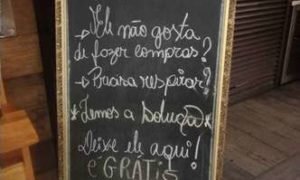 →Ele não gosta
de fazer compras?
→Precisa respirar?
*Temos a solução*
Deixe ele aqui!
é GRÁTIS